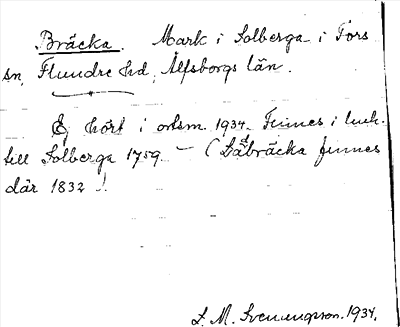 Bräcka. Mark i Solberga i Fors
sn, Flundre hd, Älfsborgs län.
Ej hört i ortsm. 1934. Finnes i
till Solberga 1759. – (Ladbräcka finnes
där 1832!
L. M. Svenungsson. 1934.